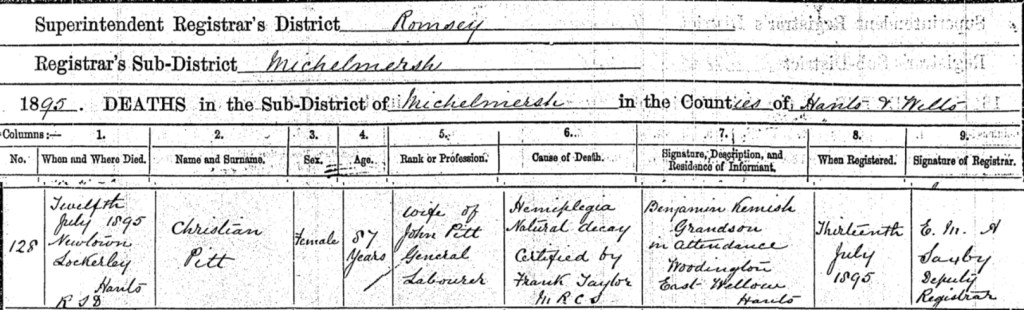 Superintendent Registrar's District Romsey
Registrar's Sub-District Michelmersh
1895. DEATHS in the Sub-District of Michelmersh in the Counties of Hants & Wilts
Columns:— 1. 2. 3. 4. 5. 6. 7. 8. 9.
No. When and Where Died. Name and Surname. Sex. Age. Rank or Profession. Cause of Death. Signature, Description, and Residence of Informant. When Registered. Signature of Registrar.
128
Twelfth
July 1895
Newtown
Lockerley
Hants
R S D
Christian
Pitt
Female
87
Years
Wife of
John Pitt
General
Labourer
Hemiplegia
Natural decay
Certified by
Frank Taylor
M R C S
Benjamin Kemish
Grandson
in attendance
Woodington
East Wellow
Hants
Thirteenth
July
1895
E. M. A
Saxby
Deputy
Registrar